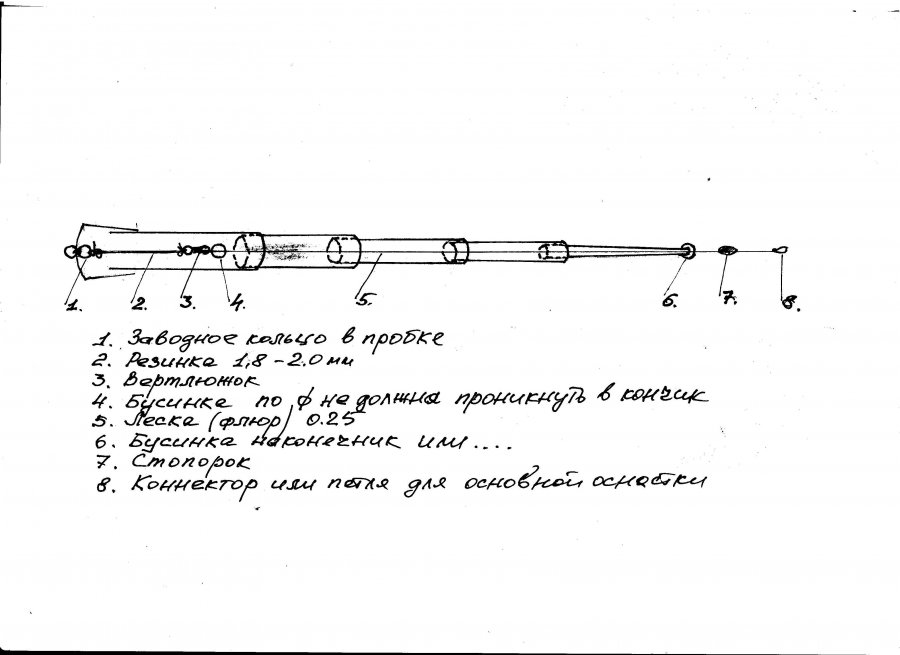 1. 2. 3. 4. 5. 6. 7. 8.
1. Заводное кольцо в пробке
2. Резинка 1,8-2.0 мм
3. Вертлюжок
4. Бусинка по ϕ не должна проникнуть в кончик
5. Леска (флюр) 0.25
6. Бусинка наконечник или....
7. Стопорок
8. Коннектор или петля для основной оснастки